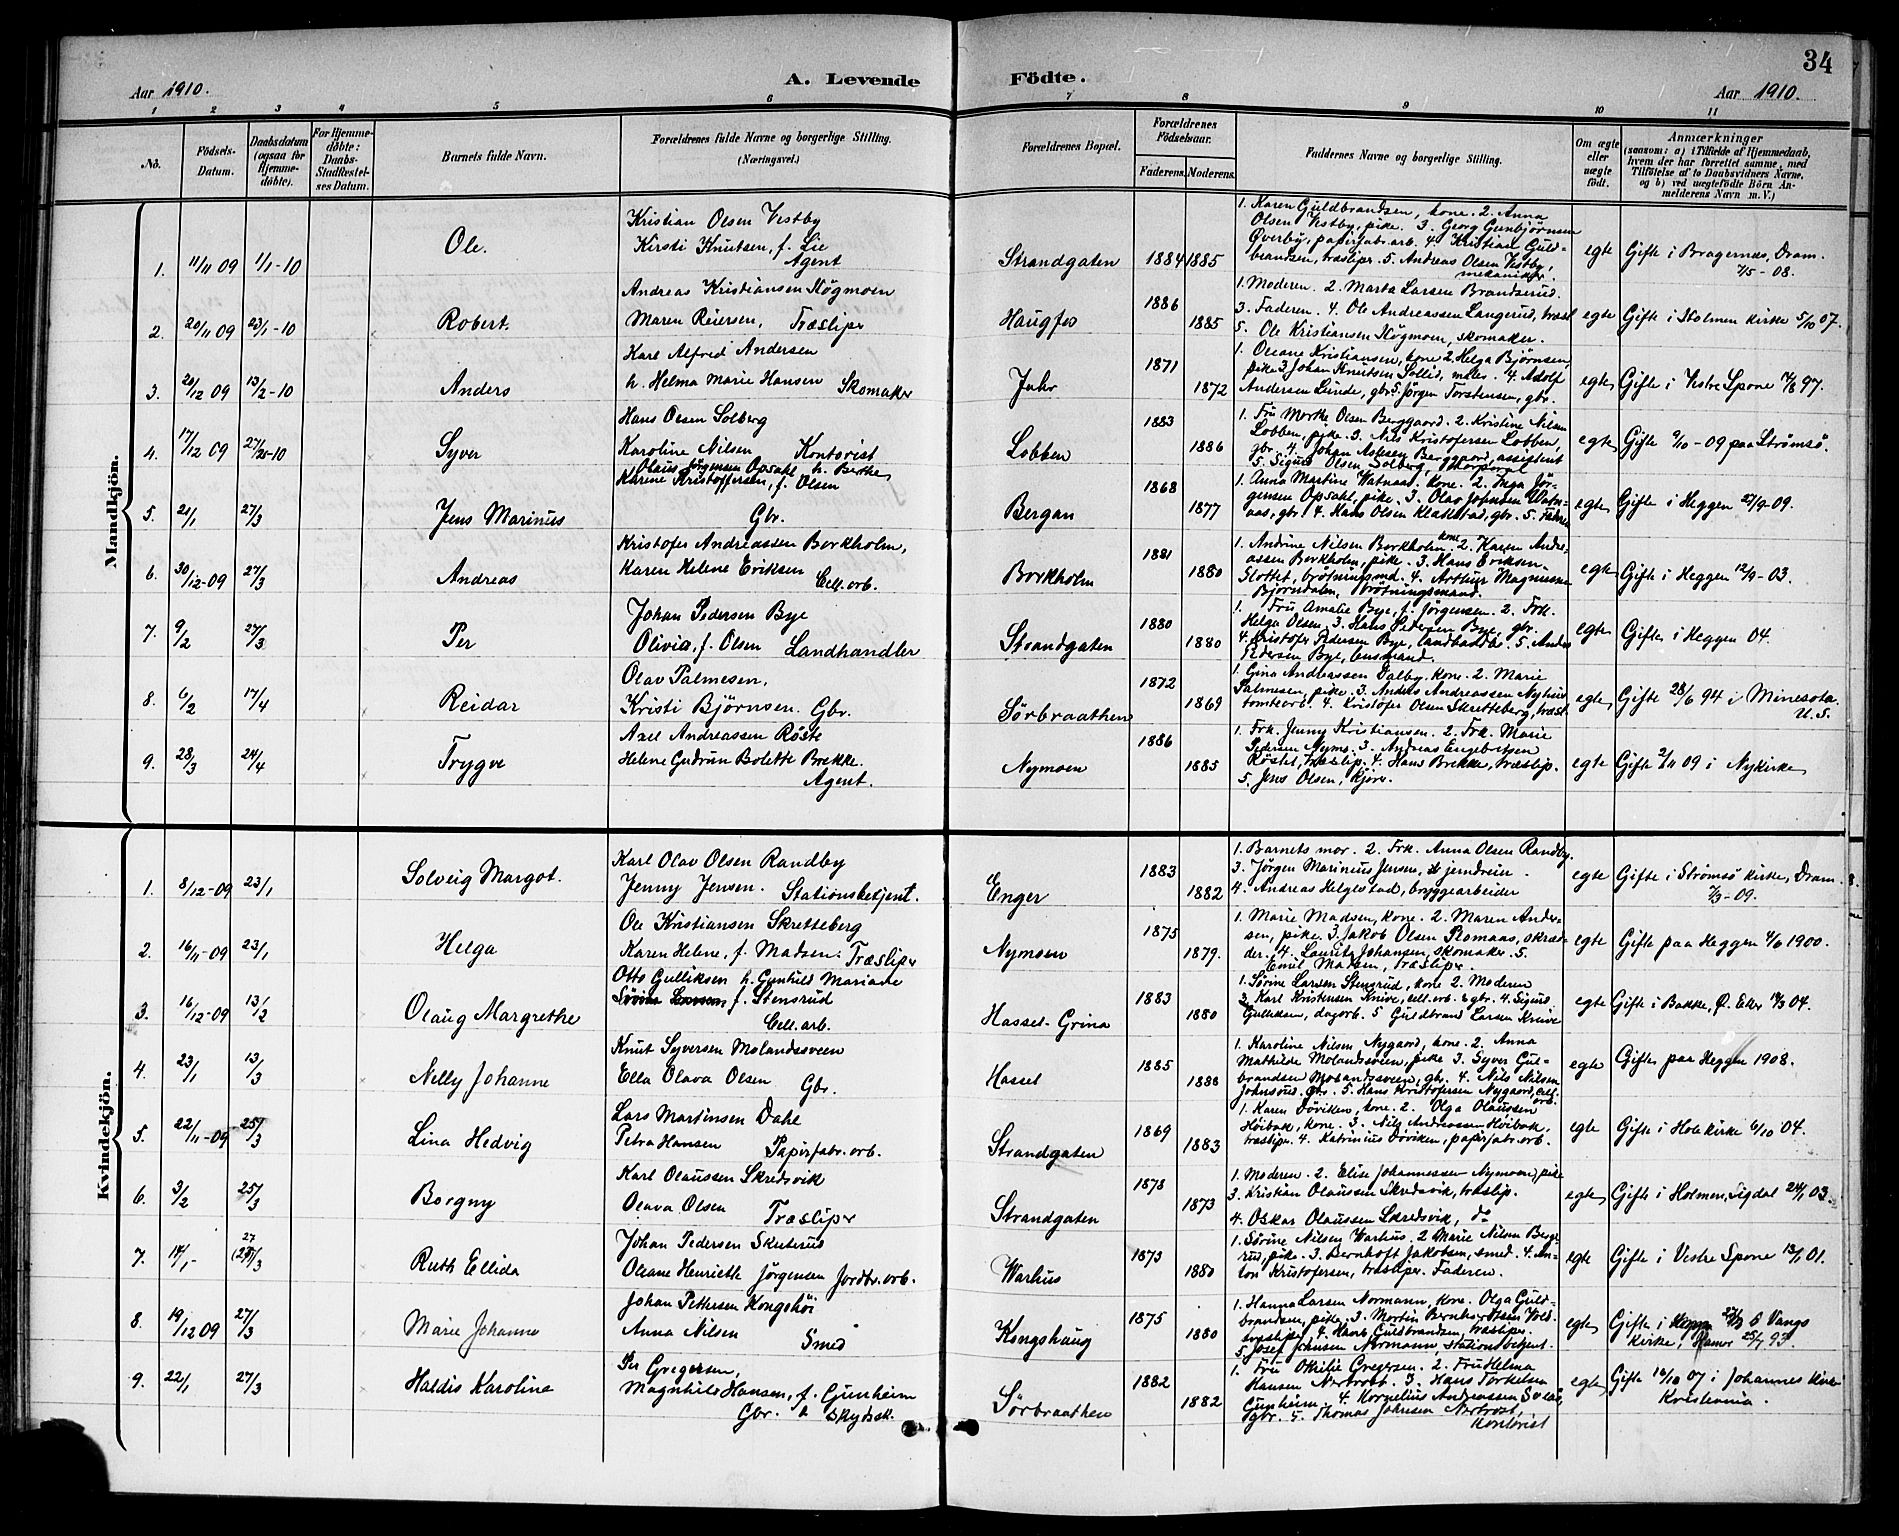 34
Aar 1910.
A. Levende Födte.
Aar 1910.
1 2 3 4 5 6 7 8 9 10 11
No.
Födsels-
Datum.
Daabsdatum
(ogsaa for
Hjemme-
döbte).
For Hjemme-
döbte:
Daabs-
Stadfæstel-
ses Datum.
Barnets fulde Navn.
Forældrenes fulde Navne og borgerlige Stilling.
(Næringsvei.)
Forældrenes Bopæl.
Forældrenes
Födselsaar.
Faderens. Moderens.
Faddernes Navne og borgerlige Stilling.
Om ægte
eller
uægte
født.
Anmærkninger
(saasom: a) i Tilfælde af Hjemmedaab,
hvem der har forrettet samme, med
Tilföielse af to Daabsvidners Navne,
og b) ved uægtefödte Börn An-
melderens Navn m. V.)
Mandkjön.
1. 11/11 09 1/1-10 Ole.
Kristian Olsen Vestby
Kirsti Knutsen, f. Lie
Agent
Strandgaten 1884 1885
1. Karen Guldbrandsen, kone. 2. Anna
Olsen Vestby, pike. 3. Georg Gunbjörnsen
Øverby, papirfabr.arb. 4. Kristian Guld-
brandsen, træslipr. 5. Andreas Olsen Vestby,
mekaniker.
egte Gifte i Bragernæs, Dram.
2. 20/11 09 23/1-10 Robert.
Andreas Kristiansen Högmoen
Maren Reiersen, Træsliper
Haugfos 1886 1885
1. Moderen. 2. Marta Larsen Brandsrud.
3. Faderen. 4. Ole Andreassen Langerud, træsl
5. Ole Kristiansen Högmoen, skomaker.
egte Gifte i Holmen kirke 5/10 07.
3. 20/12 09 13/2-10 Anders
Karl Alfred Andersen
h. Helma Marie Hansen Skomaker
Juhr 1871 1872
1. Oleane Kristiansen, kone 2. Helga Bjørnsen,
pike 3. Johan Knutsen Sollid, maler. 4. Adolf
Andersen Lunde, gbr. 5. Jörgen Torstensen, gbr.
egte Gifte i Vestre Spone 97.
4. 17/12 09 Syver
Hans Olsen Solberg
Karoline Nilsen Kontorist
Lobben 1883 1886
1. Fru Marthe Olsen Berggaard. 2. Kristine Nilsen
Lobben, pike. 3. Nils Kristofersen Lobben,
gbr. 4. Johan Berggaard, assistent
5. Sigurd Olsen Solberg, korporal
egte Gifte 9/10-09 paa Strömsö.
5. 21/1 27/3 Jens Marinus
Olaus Jørgensen Opsahl h. Berthe
Karine Kristoffersen, f. Olsen
Gbr.
Bergan 1868 1877
1. Anna Martine Watnaas, kone. 2. Inga Jör-
gensen Opsahl, pike. 3. Olav Johnsen Watn-
aas, gbr. 4. Hans Olsen Klattestad, gbr. 5. Faderen
egte Gifte i Heggen 27/9-09.
6. 30/12-09 27/3 Andreas
Kristofer Andreassen Borkholm,
Karen Helene Eriksen Cell.arb.
Borkholm 1881 1880
1. Andrine Nilsen Borkholm kone 2. Karen Andre-
assen Borkholm, pike. 3. Hans Eriksen
Slottet, brötningsmd. 4. Arthur Magnussen
Bjørndalen, brötningsmand.
egte Gifte i Heggen 12/9-03.
7. 9/2 27/3 Per
Johan Pedersen Bye
Olivia, f. Olsen Landhandler
Strandgaten 1880 1880
1. Fru Amalie Bye, f. Jörgensen. 2. Frk.
Helga Olsen. 3. Hans Pedersen Bye, gbr.
4. Kristofer Pedersen Bye, landhandler. 5. Anders
Pedersen Bye, lensmand.
egte Gifte i Heggen 04.
8. 6/2 17/4 Reidar
Olav Palmesen,
Kristi Björnsen. Gbr.
Sörbraathen 1872 1869
1. Gina Andreassen Dalby. kone. 2. Marie
Palmesen, pike. 3. Anders Andreassen Nyhus
tomtearb. 4. Kristofer Olsen Skretteberg, træsl.
egte Gifte 28/6 94 i Minesota.
U.S.
9. 28/3 24/4 Trygve
Axel Andreassen Röste
Helene Gudrun Bolette Brekke.
Agent.
Nymoen 1886 1885
1. Frk. Jenny Kristiansen. 2. Frk. Marie
Pedersen Nymo. 3. Andreas Engebretsen
Röstet, træslip. 4. Hans Brekke, træslip.
5. Jens Olsen, kjöre.
egte Gifte 2/11 09 i Nykirke
Kvindekjön.
1. 8/12-09 23/1 Solveig Margot.
Karl Olav Olsen Randby
Jenny Jensen. Stationsbetjent.
Enger 1883 1882
1. Barnets mor. 2. Frk. Anna Olsen Randby.
3. Jörgen Marinius Jensen, jerndrein.
4. Andreas Helgestad, bryggearbeider
egte Gifte i Strömsö kirke, Dram.
7/3-09.
2. 16/11-09 23/1 Helga
Ole Kristiansen Skretteberg
Karen Helene, f. Madsen. Træsliper
Nymoen 1875 1879.
1. Marie Madsen, kone. 2. Maren Ander-
sen, pike. 3. Jakob Olsen Romaas, skræd-
der. 4. Lauritz Johansen, skomaker. 5.
Emil Madsen, træsliper.
egte Gifte paa Heggen 4/6 1900.
3. 16/12-09 13/2 Olaug Margrethe
Otto Gulliksen h. Gunhild Mariane
Sörine Larsen, f. Stensrud
Cell.arb.
Hassel-Grina 1883 1880
1. Sörine Larsen Stensrud, kone 2. Moderen
3. Karl Kristensen Knive, cell.arb. & gbr. 4. Sigurd
Gulliksen, dagarb. 5 Guldbrand Larsen Knive
egte Gifte i Bakke, Ø. Eker 04.
4. 23/1 13/3 Nelly Johanne
Knut Syversen Molandssveen
Ella Olava Olsen Gbr.
Hassel 1885 1886
1. Karoline Nilsen Nygaard, kone. 2. Anna
Mathilde Molandsveien, pike 3. Syver Gul-
brandsen Molandssveen, gbr. 4. Nils Nilsen
Johnsrud, gbr. 5. Hans Kristofersen Nygaard, cell.
arb.
egte Gifte paa Heggen 1908.
5. 22/11-09 25/3 Lina Hedvig
Lars Martinsen Dahl
Petra Hansen Papirfabr.arb.
Strandgaten 1869 1883
1. Karen Döviken, kone. 2. Olga Olaussen
Höibak, kone. 3. Nils Andreassen Höibak,
træslipr. 4. Katrinius Döviken, papirfabr.arb.
egte Gifte i Hole kirke 6/10 04.
6. 3/2 25/3 Borgny
Karl Olaussen Skredsvik
Olava Olsen Træsliper
Strandgaten 1878 1873
1. Moderen. 2. Elise Johannessen Nymoen, pike
3. Kristian Olaussen Skredsvik, træslip.
4. Oskar Olaussen Skredsvik, do
egte Gifte i Holmen, Sigdal 24/1 03.
7. 14/1- 27/3 Ruth Ellida
Johan Pedersen Skuterus
Oleane Henriette Jörgensen Jordbr.arb.
Warhus 1873 1880
1. Sörine Nilsen Warhus. 2 Marie Nilsen Berge-
rud, pike. 3. Bernhoft Jakobsen, smed. 4. An-
ton Kristofersen, træsliper. Faderen.
egte Gifte i Vestre Spone 13/1 01.
8. 19/12 09 27/3 Marie Johanne
Johan Pettersen Kongshöi
Anna Nilsen Smed
Kongshaug 1875 1880
1. Hanna Larsen Normann, kone. Olga Guld-
brandsen, pike. 3. Martin Olsen Vold.
træsliper. 4. Hans Guldbrandsen, træsliper.
5. Josef Johnsen Normann, stationsbetjent.
egte Gifte i Vangs
kirke, Hamar
9. 22/1 27/3 Haldis Karoline
Per Gregersen,
Magnhild Hansen, f. Gunheim
Gbr. & skydssk.
Sörbraathen 1882 1882
1. Fru Othilie Gregersen. 2. Fru Helma
Hansen Nertrost. 3. Hans Torkelsen
Gunheim. 4. Kornelius Andreassen
gbr. 5. Thomas Johnsen Nertrost,
Kontorist
egte Gifte 16/10 07 i Johannes kirke
Kristiania.